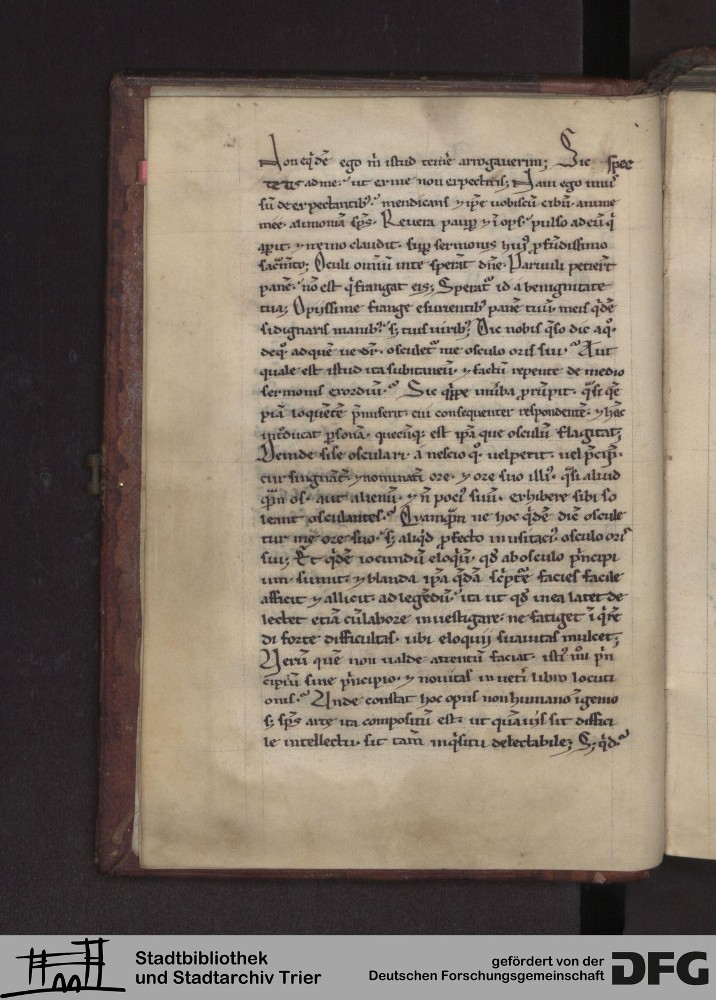 Non eq̇dē ego m̄ istud tem̄e arrogaverim; Sic spec
tetis ad me. ut ex me non expectetis; Nam ego unus
sū de expectantibꝫ. mendicans ⁊ ip̄e vobiscū cibū anime
mee. alimoniā sp̄s. Revera paup̄ ⁊ īops. pulso ad eū q̇
ap̄it. ⁊ nemo claudit. sup̄ sermonis huiꝰ p̄fūdissimo
sac̄mēto; Oculi omniū in te sperāt dn̄e. Parvuli petier̄t
panē. nō est q̇ frangat eis; Sperat᷑ id a benignitate
tua; O piissime frange esurientibꝫ panē tuū. meis q̇dē
si dignaris manibꝫ. sꝫ tuis viribꝫ; Dic nobis q̄so dic a quo.
de quo. ad quē dr̄. osculet᷑ me osculo oris sui. Aut
quale est istud ita subitaneū. ⁊ factū repente de medio
sermonis exordiū. Sic q̇ppe in v̄ba p̄rūpit. q̄si quē
piā loquētē p̄miserit. cui consequenter respondentē. ⁊ hāc
īt̄ducat p̄sonā. quecūqꝫ est ip̄a que osculū flagitat;
Deinde si se osculari a nescio quo. vel petit. vel p̄cipit.
cur singnāt̄. ⁊ nominatī ore. ⁊ ore suo illiꝰ. q̄si aliud
q̄m os. aut alienū. ⁊ n̄ pociꝰ suū. exhibere sibi so
leant osculantes. Quamq̄m ne hoc q̇dē dic̄ oscule
tur me ore suo. sꝫ aliq̇d p̄fecto inusitaciꝰ. osculo oris
sui; Et q̇dē iocundū eloq̇ū. qd̄ ab osculo p̄ncipi
um sumit. ⁊ blanda ip̄a q̄dā sc̄pt̄e facies facile
afficit ⁊ allicit. ad legēdū. ita ut qd̄ in ea latet de
lectet etiā cū labore investigare. ne fatiget ī q̇re
di forte difficultas. ubi eloquii suavitas mulcet;
Verū quē non valde attentū faciat. istiꝰ mōi p̄n
cipiū sine p̄ncipio. ⁊ novitas in vet̄i libro locuti
onis. Unde constat hoc opus non humano īgenio
sꝫ sp̄s arte ita compositū est. ut quāvis sit diffici
le intellectu. sit tam̄ inq̇situ delectabile; Sꝫ q̇d.
Stadtbibliothek
und Stadtarchiv Trier
gefördert von der
Deutschen Forschungsgemeinschaft
DFG